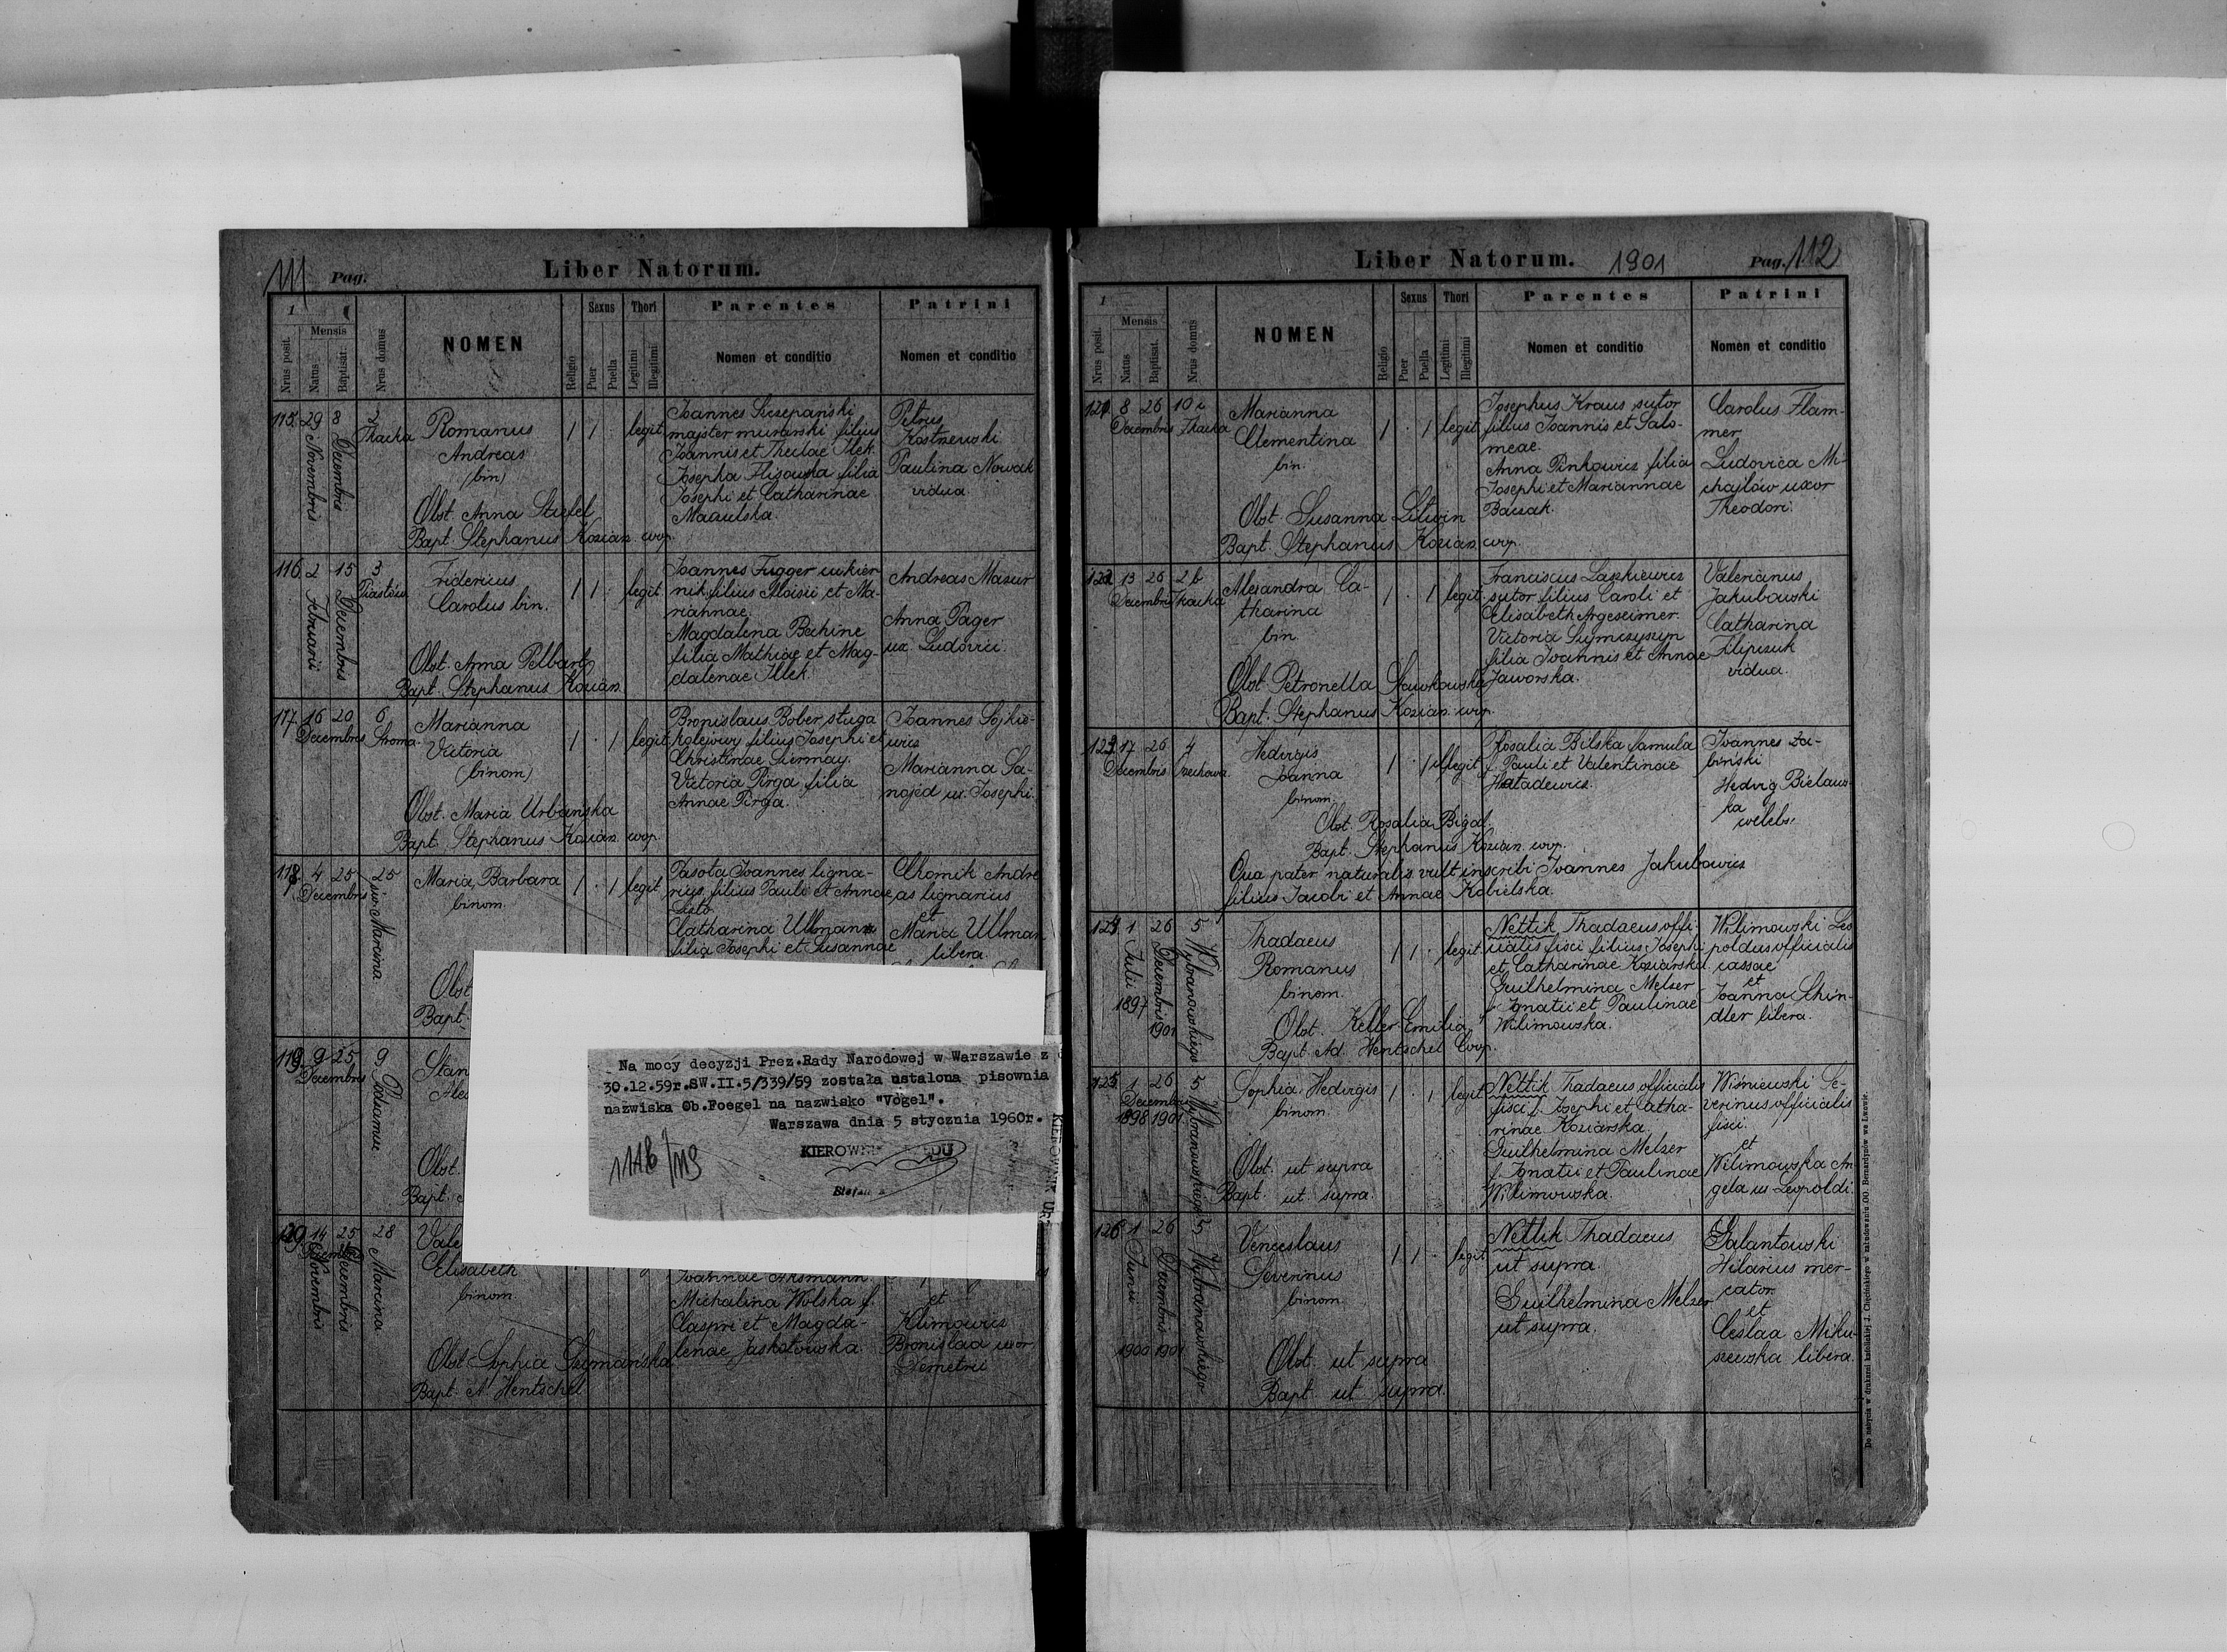 111 Pag.
Liber Natorum.
1
Mensis
Nrus posit.
Natus
Baptisat.
Nrus domus
NOMEN
Religio
Sexus
Puer
Puella
Thori
Legitimi
Illegitimi
Parentes
Nomen et conditio
Patrini
Nomen et conditio
115. 29 Novembris 8 Decembris 2 Tkacka
Romanus
Andreas
(bin)
1 1 . legit
Obst. Anna Stiefel
Bapt. Stephanus Kozian. coop.
Joannes Szczepański
majster murarski filius
Joannis et Theclae Ilek.
Josepha Flisowska filia
Josephi et Catharinae
Petrus
Kostrzewski
Paulina Nowak
vidua
116 2 Februarii 15 Decembris 3 Piastów
Fridericus
Carolus bin.
1 1 . legit
Obst. Anna Pelbart
Bapt. Stephanus Kozian.
Joannes Fugger cukier
nik filius Aloisii et Ma-
riannae.
Magdalena Bechine
filia Mathiae et Mag-
dalenae Illek.
Andreas Mazur
Anna Pager
ux. Ludovici.
117. 16 20 Decembris 6 Stroma
Marianna
Victoria
(binom)
1 . 1 legit
Obst. Maria Urbańska
Bapt. Stephanus Kozian. coop.
Bronislaus Bober sługa
kolejowy filius Josephi et
Christinae Siermay.
Victoria Pirga filia
Annae Pirga.
Joannes Sojkie-
wicz
Marianna Sa-
nojed ux. Josephi.
118 4 25 Decembris 25 Marcina
Maria Barbara
binom.
1 . 1 legit
Obst
Bapt.
Pasota Joannes ligna-
rius, filius Pauli et Annae
Catharina Ullmann
filia Josephi et Susannae
Chomik Andre
as lignarius
et
Maria Ullman
libera
119. 9 25 Decembris 9
Stan
Obst.
Bapt.
Na mocy decyzji Prez.Rady Narodowej w Warszawie z
30.12.59r.SW.II.5/339/59 została ustalona pisownia
nazwiska Ob.Foegel na nazwisko "Vögel".
Warszawa dnia 5 stycznia 1960r.
KIEROWN DU
Stefan
1116/119
KIEROWNIK UR
14 25 Decembris 28 Marcina
Vale
Elisabeth
binom.
Obst. Sophia Szymańska
Bapt. A. Hentschel
Michalina Wolska f.
Caspri et Magda-
lenae
et
Klimowicz
Bronislaa uxor
Demetrii
Liber Natorum. 1901 Pag. 112
1
Mensis
Nrus posit.
Natus
Baptisat.
Nrus domus
NOMEN
Religio
Sexus
Puer
Puella
Thori
Legitimi
Illegitimi
Parentes
Nomen et conditio
Patrini
Nomen et conditio
121 8 26 Decembris 10 c Tkacka
Marianna
Clementina
bin.
1 . 1 legit
Obst. Susanna Litwin
Bapt. Stephanus Kozian. coop.
Josephus Kraus sutor
filius Joannis et Salo-
meae.
Anna Pinkowicz filia
Josephi et Mariannae
Baczak.
Carolus Flam-
mer
Ludovica Mi-
chajlów uxor
Theodori.
122 13 26 Decembris 2 b Tkacka
Alexandra Ca-
tharina
bin.
1 . 1 legit.
Obst. Petronella Stawkowska
Bapt. Stephanus Kozian. coop.
Franciscus Laszkiewicz
sutor filius Caroli et
Elisabeth Argeseimer.
Victoria Szymczyszyn
filia Joannis et Annae
Jaworska.
Valerianus
Jakubowski
Catharina
Filipczuk
vidua.
123 17 26 Decembris 4
Hedvigis
Joanna
binom.
1 . 1 illegit.
Obst. Rosalia Bigd.
Bapt. Stephanus Kozian. coop.
Qua pater naturalis vult inscribi Joannes Jakubowicz
filius Jacobi et Annae Kobielska.
Rosalia Bilska famula
f. Pauli et Valentinae
Hatadewicz.
Joannes Za-
biński
Hedvig Bielaws-
ka
124 1 Julii 1897 26 Decembris 1901 5 Wybranowskiego
Thadaeus
Romanus
binom.
1 1 . legit.
Obst. Keller Emilia
Bapt. Ad. Hentschel Coop.
Nettik Thadaeus offi-
cialis fisci filius Josephi
et Catharinae Koziarska.
Guilhelmina Melzer
f. Ignatii et Paulinae
Wilimowska.
Wilimowski Leo
poldus officialis
cassae
et
Joanna Schin-
dler libera.
125 1 Decembris 1898 26 1901 5 Wybranowskiego
Sophia Hedvigis
binom.
1 . 1 legit
Obst. ut supra
Bapt. ut supra.
Nettik Thadaeus officialis
fisci f. Josephi et Catha-
rinae Koziarska.
Guilhelmina Melzer
f. Ignatii et Paulinae
Wilimowska.
Wiśniewski Se-
verinus officialis
fisci.
et
Wilimowska An
gela ux Leopoldi.
126 1 Junii 1900 26 Decembris 1901 5 Wybranowskiego
Venceslaus
Severinus
binom.
1 1 . legit
Obst. ut supra
Bapt. ut supra.
Nettik Thadaeus
ut supra.
Guilhelmina Melzer
ut supra.
Galantowski
Hilarius mer-
cator.
et
Ceslaa Miku-
szewska libera.
Do nabycia w drukarni katolickiej J. Chęcińskiego w zabudowaniu OO. Bernardynów we Lwowie.